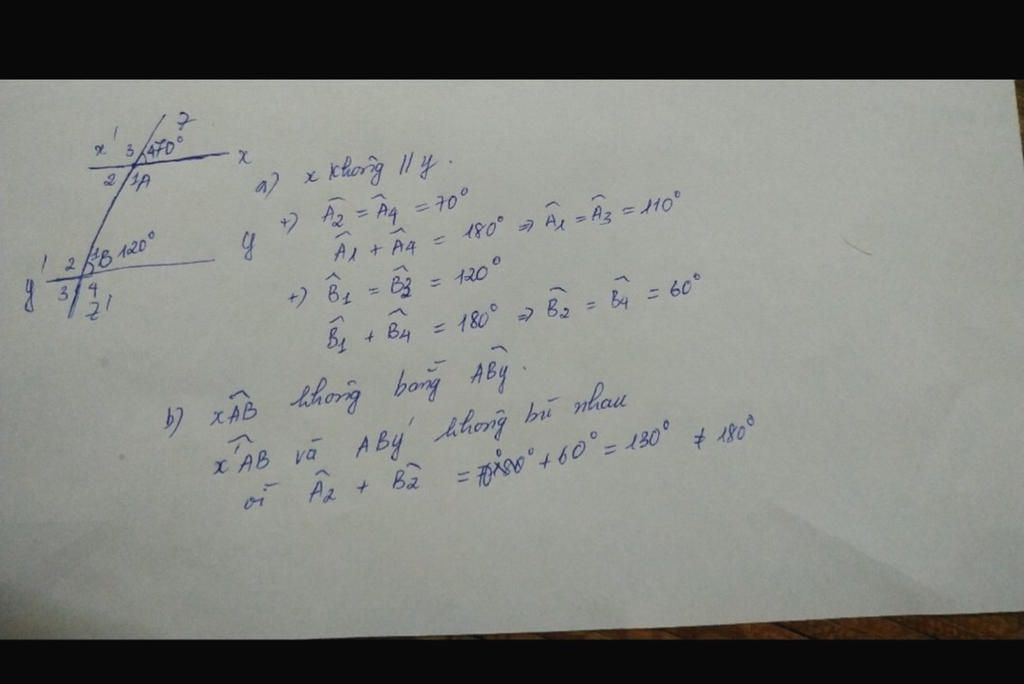 z
x' 3 4 70° x
2 1 A
y' 2 1 B 120° y
3 4
z'
a) x không // y.
+) Â₂ = Â₄ = 70°
Â₁ + Â₄ = 180° ⇒ Â₁ = Â₃ = 110°
+) B̂₁ = B̂₃ = 120°
B̂₁ + B̂₄ = 180° ⇒ B̂₂ = B̂₄ = 60°
b) xÂB không bằng AB̂y.
x'ÂB và ABy' không bù nhau
vì Â₂ + B̂₂ = 70° + 60° = 130° ≠ 180°